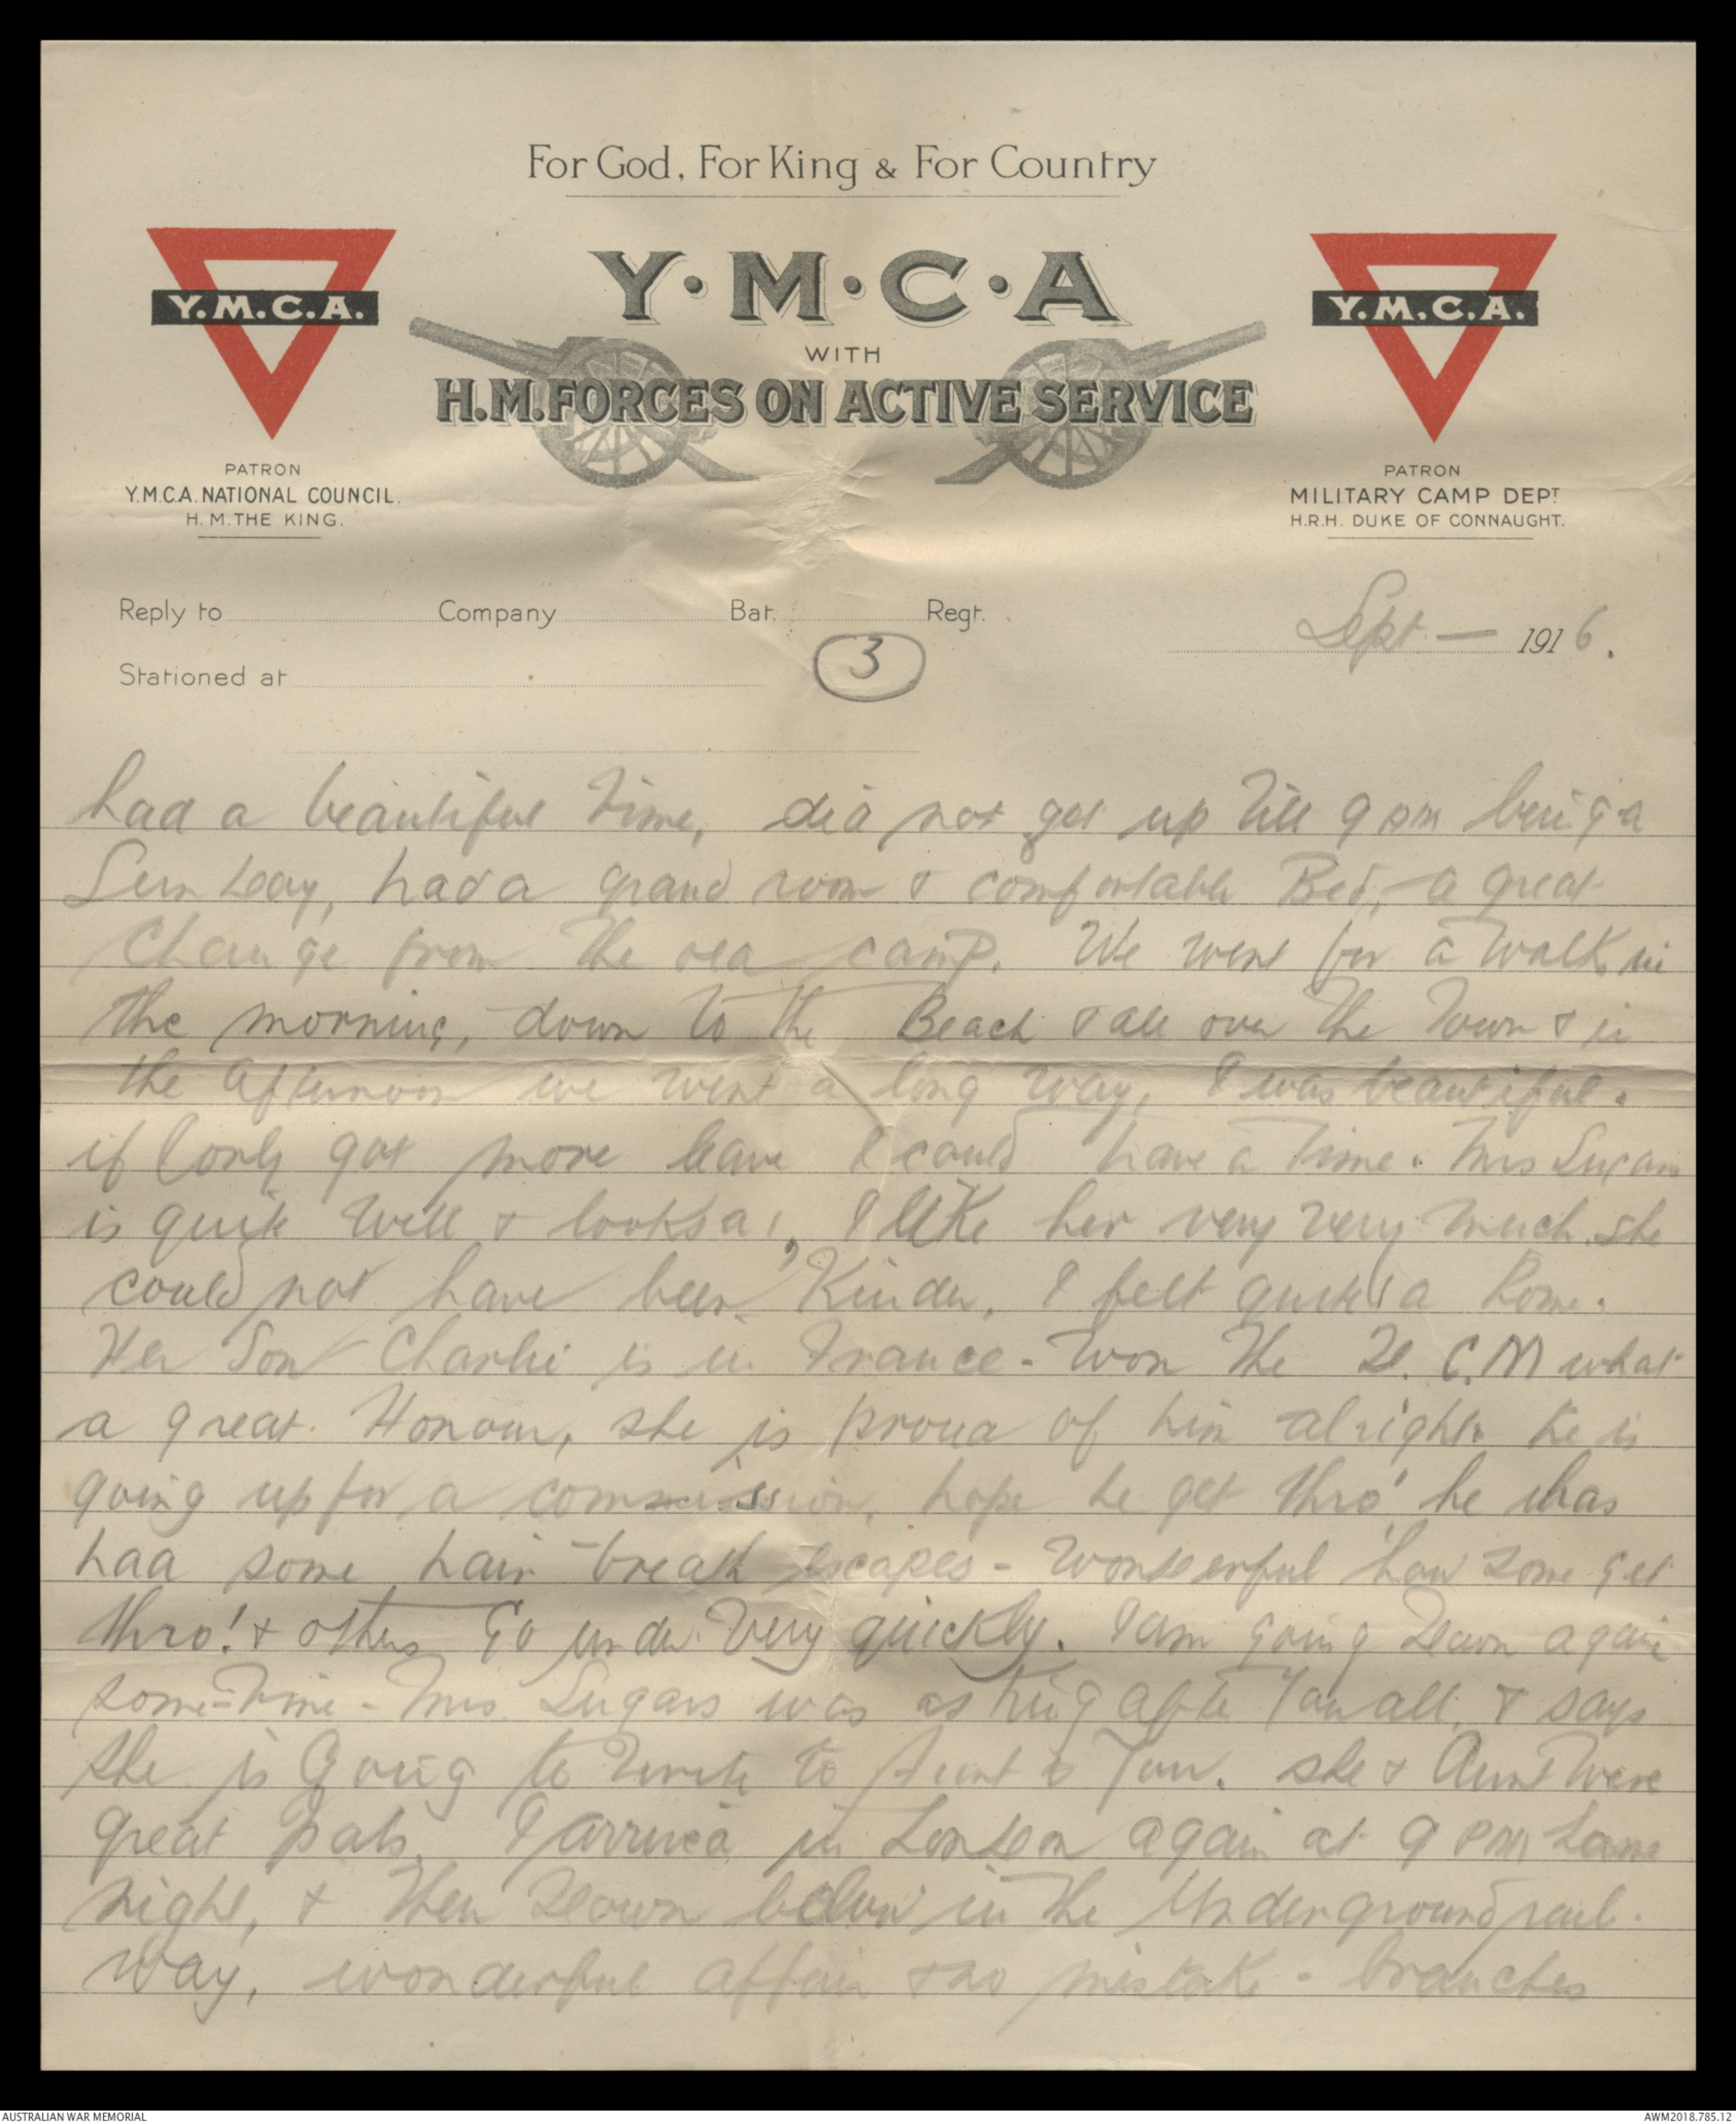 For God, For King & For Country
Y.M.C.A
WITH
H.M. FORCES ON ACTIVE SERVICE
Y.M.C.A.
PATRON
Y.M.C.A. NATIONAL COUNCIL.
H.M. THE KING.
Y.M.C.A.
PATRON
MILITARY CAMP DEPT
H.R.H. DUKE OF CONNAUGHT.
Reply to Company Bat. Regt.
Sept — 1916.
Stationed at
3
had a beautiful time, did not get up till 9 pm being a
Sunday, had a grand room & comfortable Bed, a great
change from the old camp. We went for a walk in
the morning, down to the Beach & all over the Town & in
the afternoon we went a long way, I was beautiful.
if I only got more leave I could have a time. Mrs Sugars
is quite well & looks a1, I like her very very much. she
could not have been Kinder, I felt quite a home.
Her Son Charlie is in France - won the D.C.M what
a great Honour, she is proud of him alright he is
going up for a commission, hope he get thro' he has
had some hair-breath escapes - wonderful how some get
thro'! & others Go under very quickly. I am going Down again
some-time - Mrs Sugars was asking after You all, & says
she is Going to write to Aunt & You. she & Aunt were
great Pals. I arrived in London again at 9 PM same
night, & then Down below in the Underground rail-
way, wonderful affair & no mistake - branches
AUSTRALIAN WAR MEMORIAL
AWM2018.785.12